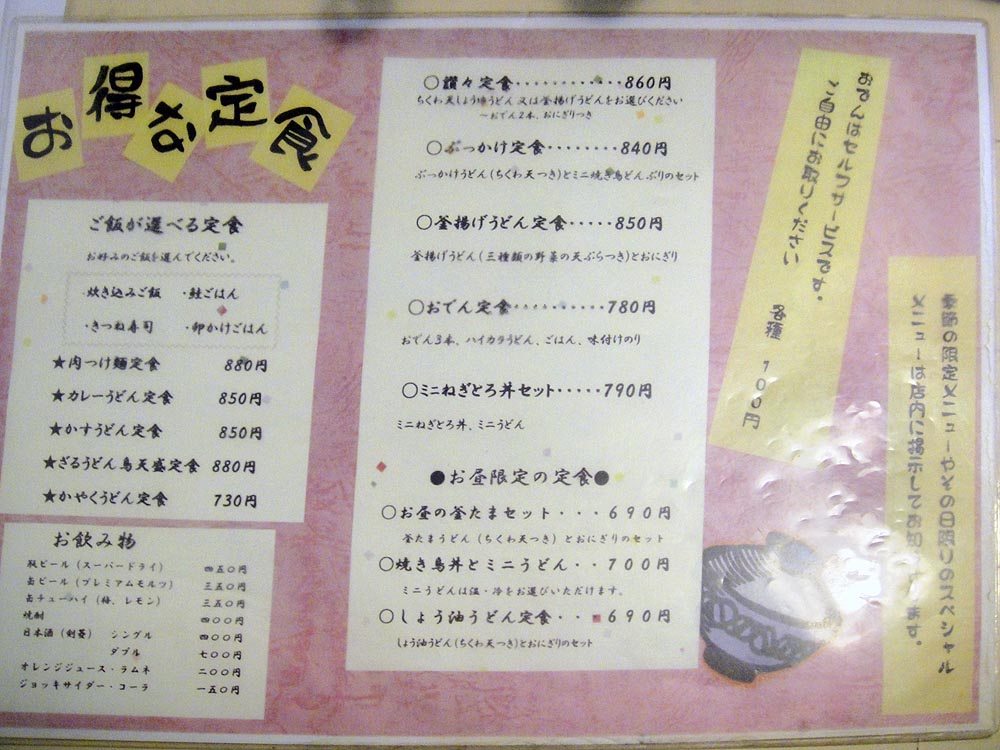 お得な定食
ご飯が選べる定食
お好みのご飯を選んでください。
・炊き込みご飯 ・鮭ごはん
・きつね寿司 ・卵かけごはん
★肉つけ麺定食 880円
★カレーうどん定食 850円
★かすうどん定食 850円
★ざるうどん鳥天盛定食 880円
★かやくうどん定食 730円
お飲み物
瓶ビール(スーパードライ) 四五〇円
缶ビール(プレミアムモルツ) 三五〇円
缶チューハイ(梅、レモン) 三五〇円
焼酎 四〇〇円
日本酒(剣菱) シングル 四〇〇円
ダブル 七〇〇円
オレンジジュース・ラムネ 二〇〇円
ジョッキサイダー・コーラ 一五〇円
○讃々定食・・・・・・・・・・・・860円
ちくわ天しょうゆうどん又は釜揚げうどんをお選びください
~おでん2本、おにぎりつき
○ぶっかけ定食・・・・・・・・840円
ぶっかけうどん(ちくわ天つき)とミニ焼き鳥どんぶりのセット
○釜揚げうどん定食・・・・・850円
釜揚げうどん(三種類の野菜の天ぷらつき)とおにぎり
○おでん定食・・・・・・・・780円
おでん3本、ハイカラうどん、ごはん、味付けのり
○ミニねぎとろ丼セット・・・・・790円
ミニねぎとろ丼、ミニうどん
●お昼限定の定食●
○お昼の釜たまセット・・・690円
釜たまうどん(ちくわ天つき)とおにぎりのセット
○焼き鳥丼とミニうどん・・700円
ミニうどんは温・冷をお選びいただけます。
○しょう油うどん定食・・・690円
しょう油うどん(ちくわ天つき)とおにぎりのセット
おでんはセルフサービスです。
ご自由にお取りください
各種 100円
季節の限定メニューやその日限りのスペシャル
メニューは店内に掲示してお知らせします。